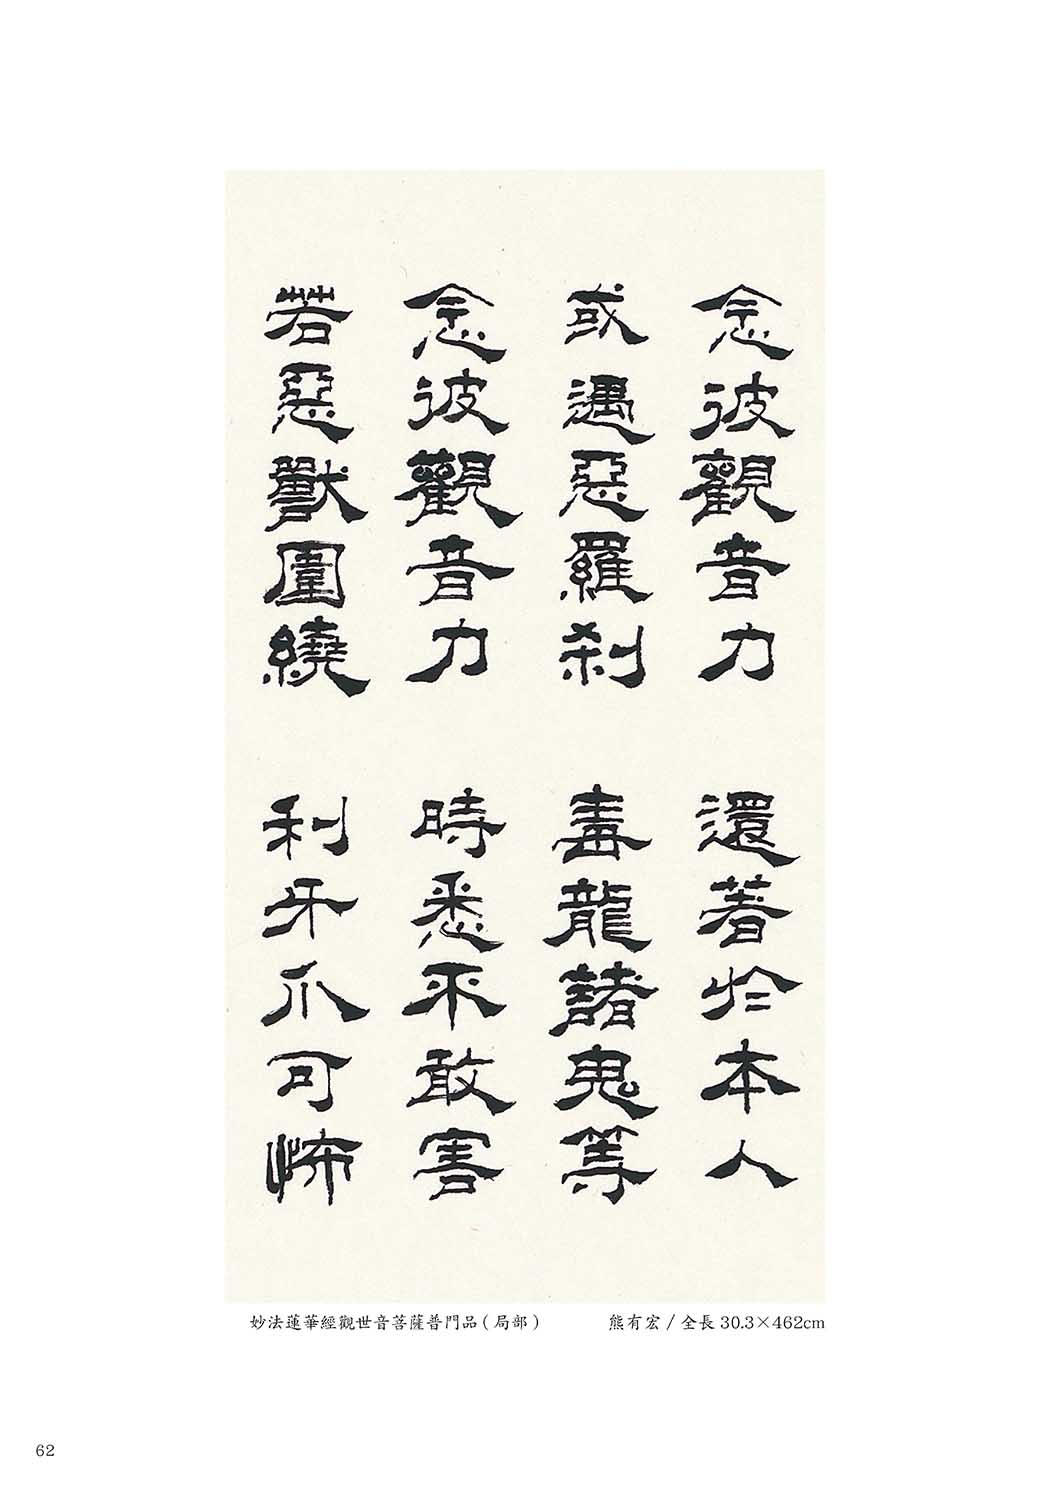 念彼觀音力　還著於本人
或遇惡羅刹　毒龍諸鬼等
念彼觀音力　時悉不敢害
若惡獸圍繞　利牙爪可怖
妙法蓮華經觀世音菩薩普門品(局部)　熊有宏/全長30.3×462cm
62